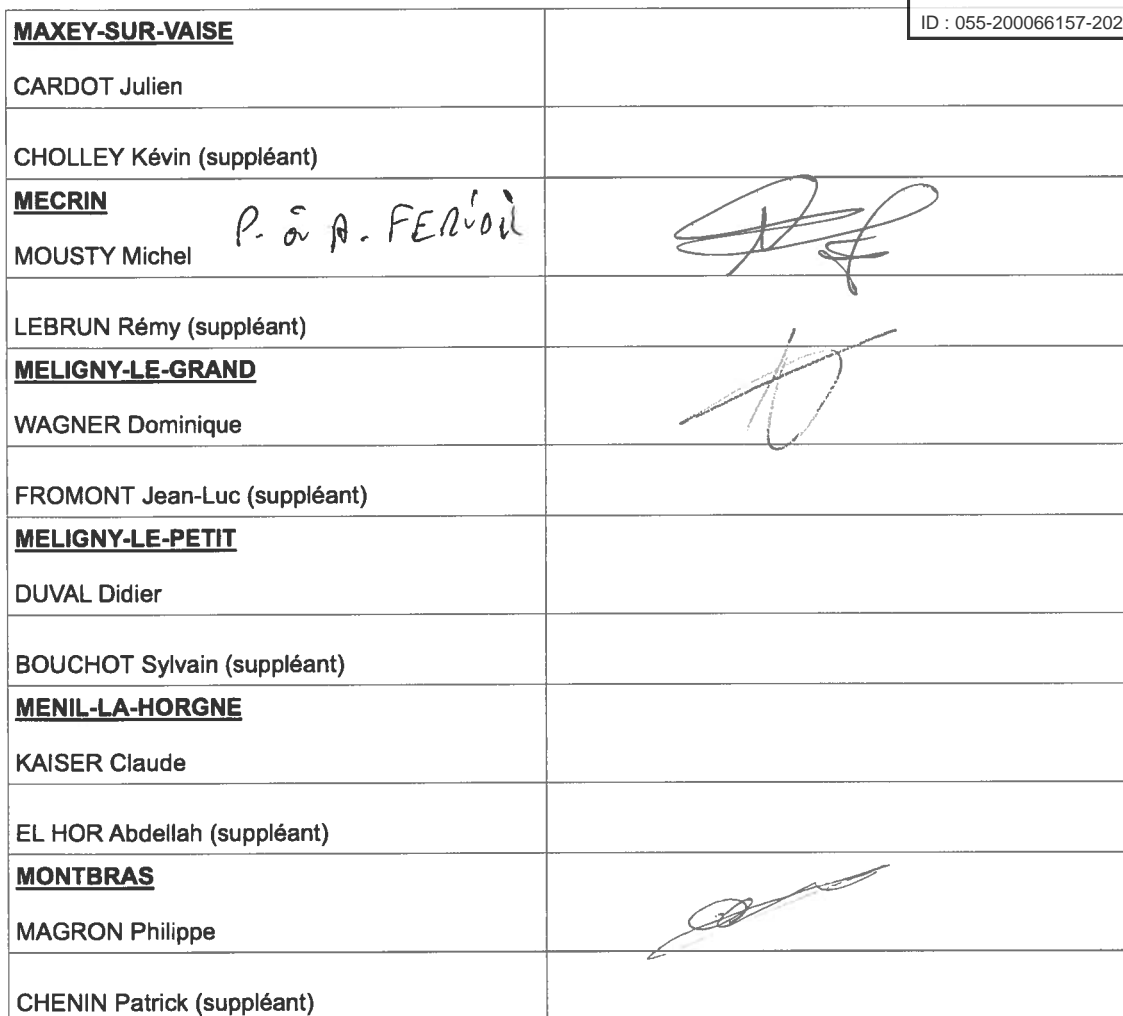 ID : 055-200066157-202
MAXEY-SUR-VAISE
CARDOT Julien
CHOLLEY Kévin (suppléant)
MECRIN
P. à A. FERIOLI
MOUSTY Michel
LEBRUN Rémy (suppléant)
MELIGNY-LE-GRAND
WAGNER Dominique
FROMONT Jean-Luc (suppléant)
MELIGNY-LE-PETIT
DUVAL Didier
BOUCHOT Sylvain (suppléant)
MENIL-LA-HORGNE
KAISER Claude
EL HOR Abdellah (suppléant)
MONTBRAS
MAGRON Philippe
CHENIN Patrick (suppléant)